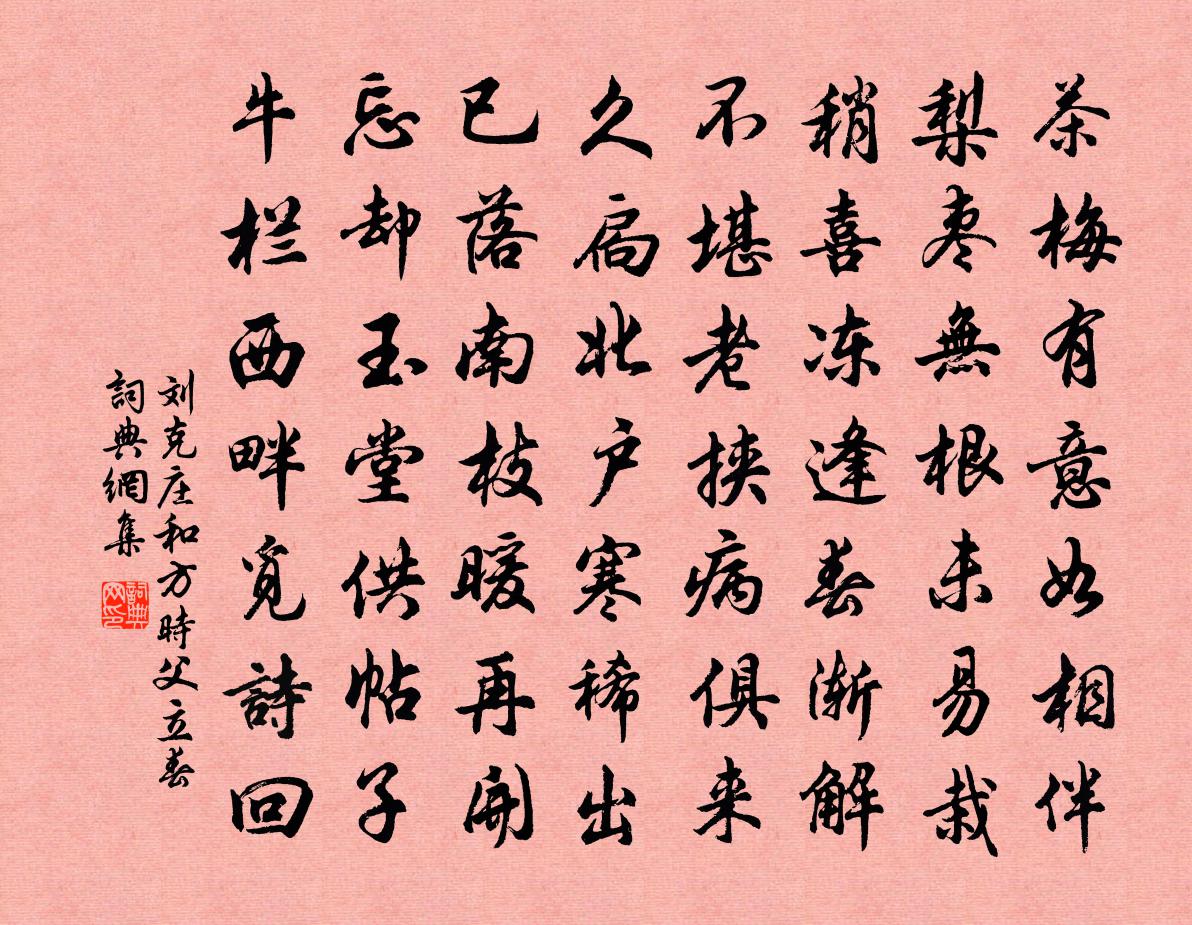 茶梅有意如相伴
梨枣無根未易栽
稍喜冻逢春渐解
不堪老挟病俱来
久扃北户寒稀出
已落南枝暖再開
忘却玉堂供帖子
牛栏西畔覓詩回
刘克庄和方時父立春
詞典網集
詞典网印